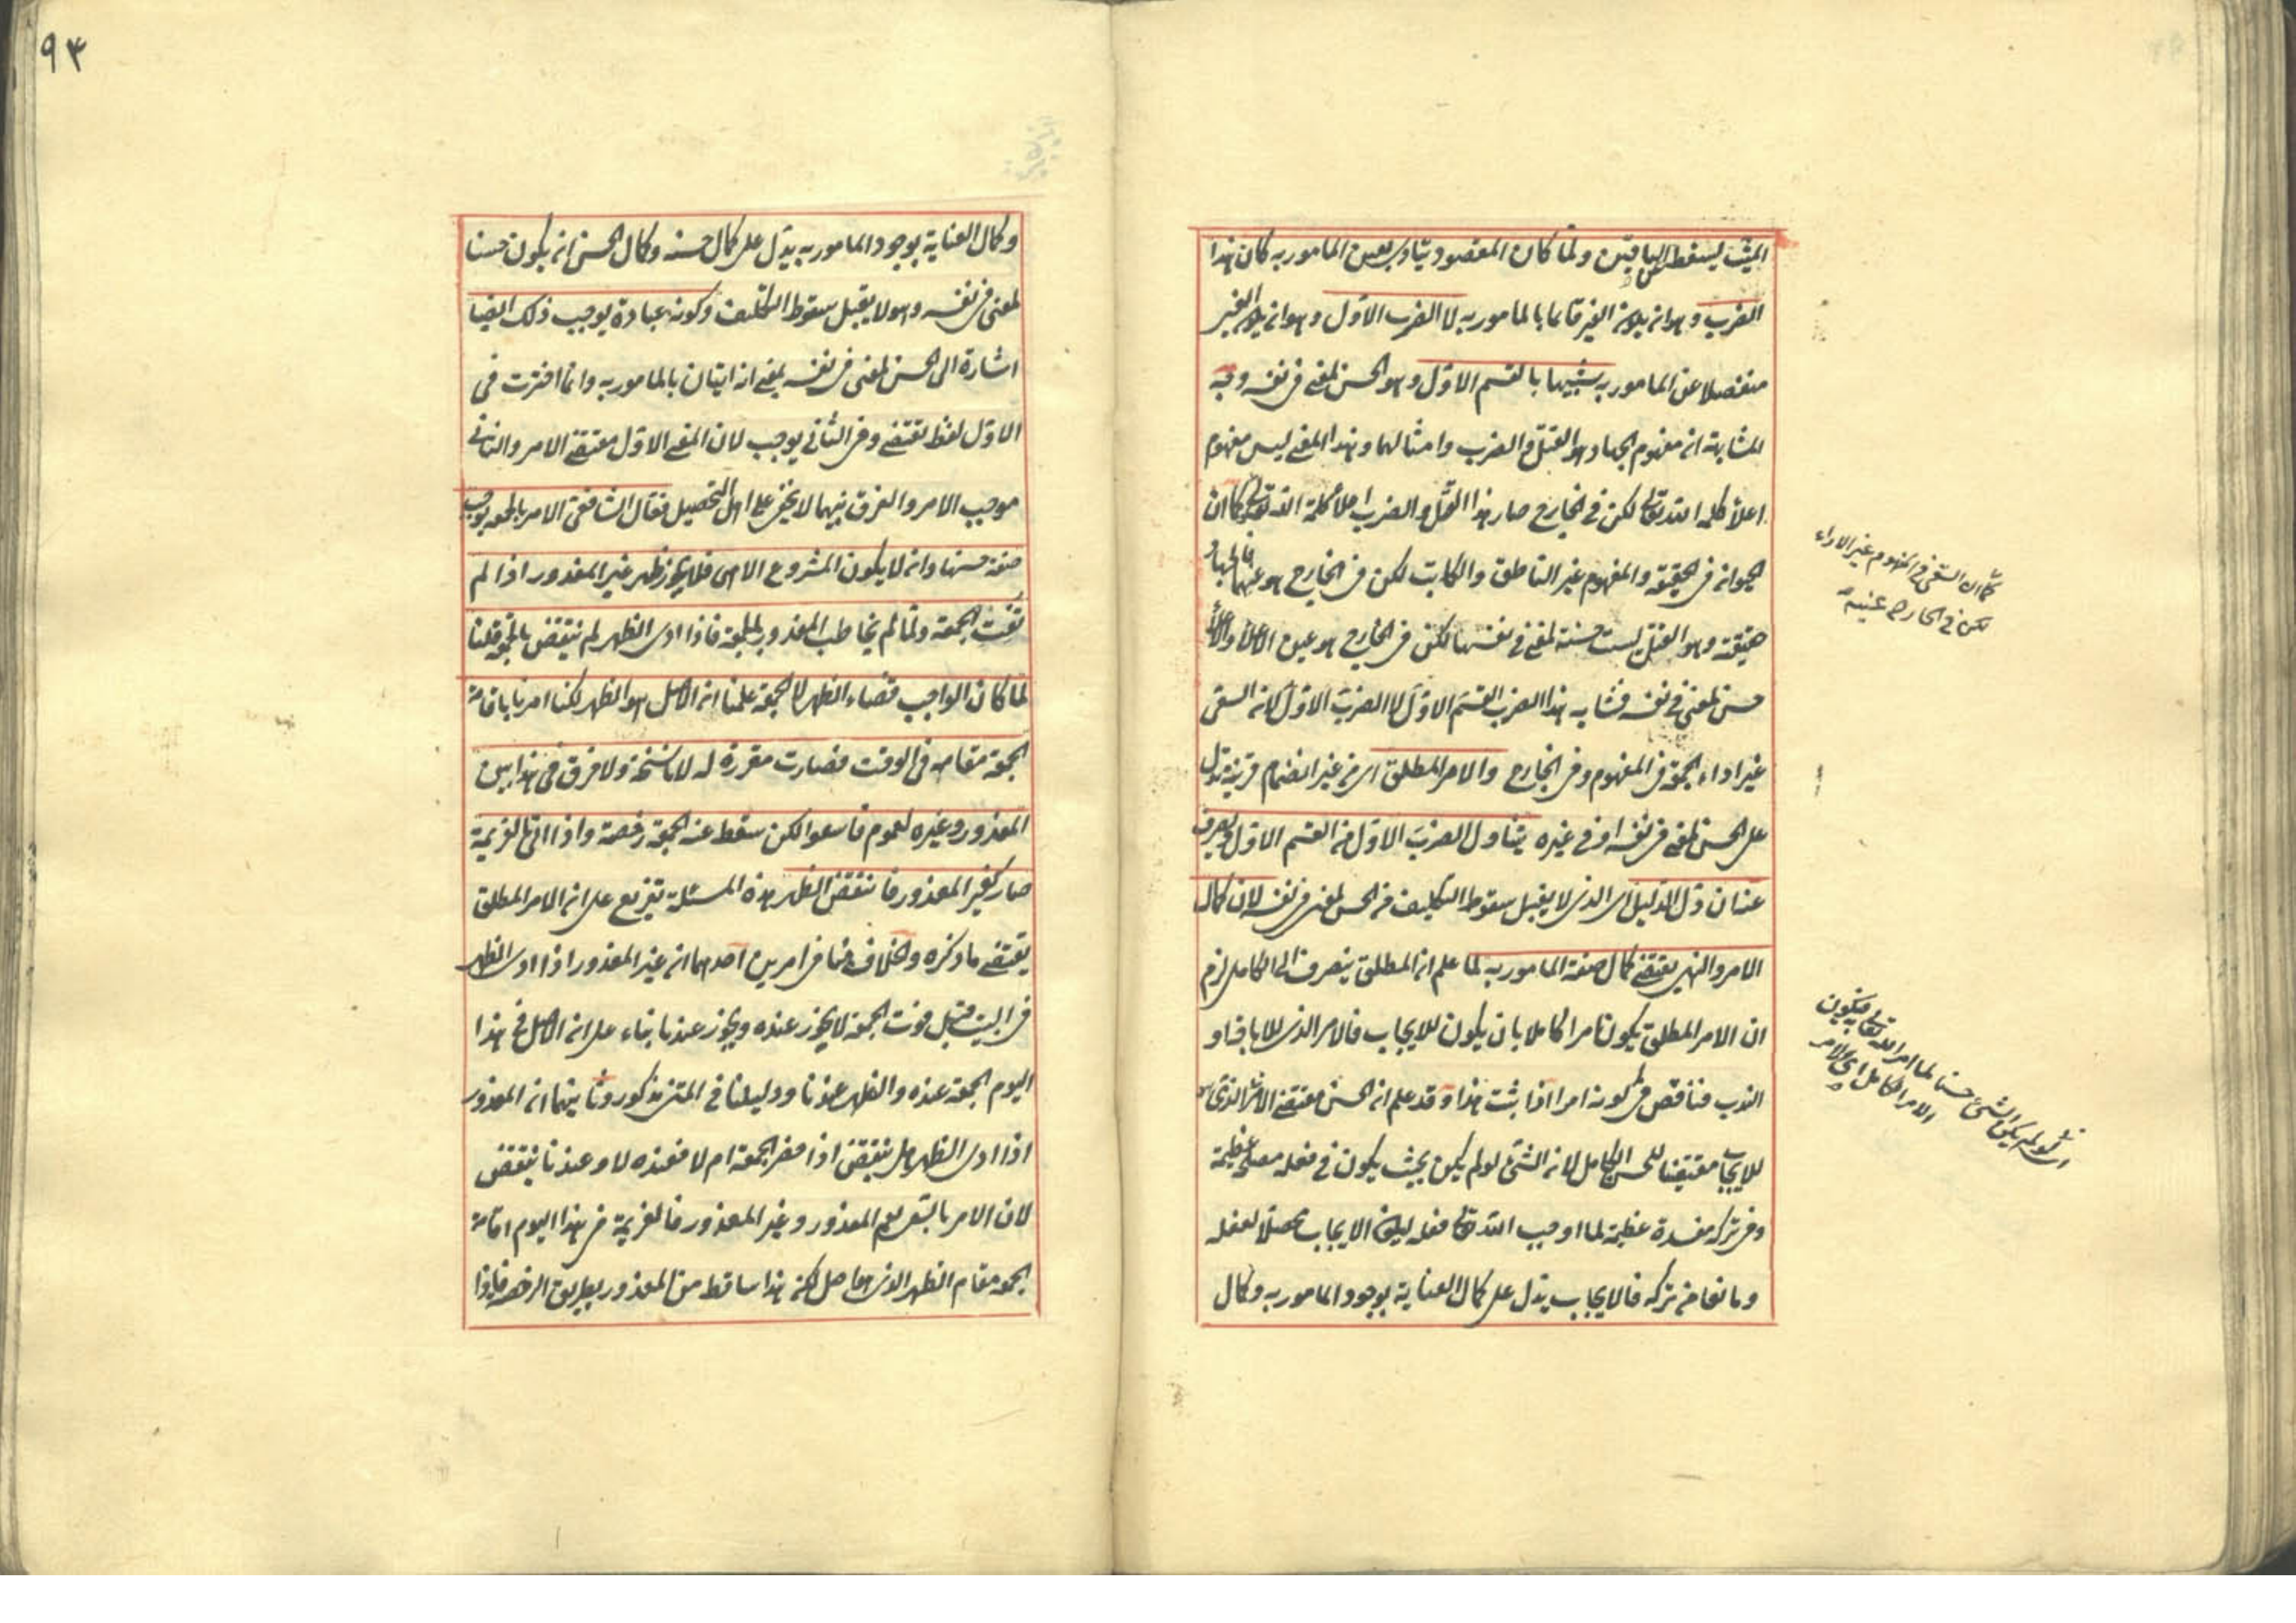 الميت يسقط عن الباقين ولما كان المقصود يتأدى بعين المأمور به كان هذا
الضرب وهو ان يكون الغير قائما بالمأمور به لا الضرب الاول وهو ان يكون الغير
منفصلا عن المأمور به شبيها بالقسم الاول وهو الحسن لمعنى في نفسه وجه
المشابهة ان مفهوم الجهاد هو القتل والضرب وامثالهما وهذا المعنى ليس مفهوم
اعلاء كلمة الله تعالى لكن في الخارج صار هذا القتل والضرب اعلاء كلمة الله تعالى كما ان
الحيوان في الحقيقة والمفهوم غير الناطق والكاتب لكن في الخارج هو عينهما فالجهاد
حقيقة وهو القتل ليست حسنة لمعنى في نفسها لكن في الخارج هو عين الاعلاء والاعلاء
حسن لمعنى في نفسه فشابه هذا الضرب القسم الاول لا الضرب الاول لان السعى
غير اداء الجمعة في المفهوم وفى الخارج والامر المطلق اى من غير انضمام قرينة تدل
على الحسن لمعنى في نفسه او في غيره يتناول الضرب الاول من القسم الاول ويصرف
عنه ان دل الدليل اى الذى لا يقبل سقوط التكليف من الحسن لمعنى في نفسه لان كمال
الامر والنهى يقتضى كمال صفة المأمور به لما علم ان المطلق ينصرف الى الكامل لزم
ان الامر المطلق يكون امرا كاملا بان يكون للايجاب فالامر الذى للاباحة او
الندب فناقص في كونه امرا اذا ثبت هذا وقد علم ان الحسن مقتضى الامر الذى
للايجاب مقتضيا للحسن الكامل لان الشئ لو لم يكن بحيث يكون في فعله مصلحة عظيمة
وفى تركه مفسدة عظيمة لما اوجب الله تعالى فعله ليكون الايجاب محصلا لفعله
ومانعا من تركه فالايجاب يدل على كمال العناية بوجود المأمور به وكمال
كما ان السعى في المفهوم غير الاداء
لكن في الخارج عينه
اى لو لم يكن الشئ حسنا لما امر الله تعالى به فيكون
الامر الكامل اى الامر
٩٣
وكمال العناية بوجود المأمور به يدل على كمال حسنه وكمال الحسن ان يكون حسنا
لمعنى في نفسه وهو لا يقبل سقوط التكليف وكونه عبادة يوجب ذلك ايضا
اشارة الى الحسن لمعنى في نفسه بمعنى انه اتيان بالمأمور به وانما اخترت في
الاول لفظ يقتضى وفى الثانى يوجب لان المعنى الاول مقتضى الامر والثانى
موجب الامر والفرق بينهما لا يخفى على اهل التحصيل فقال الشافعى الامر بالجمعة يوجب
صفة حسنها وانه لا يكون المشروع الا هى فلا يجوز ظهر غير المعذور اذا لم
تفت الجمعة ولما لم يخاطب المعذور بالجمعة فاذا ادى الظهر لم ينتقض بالجمعة قلنا
لما كان الواجب قضاء الظهر لا الجمعة علمنا ان الاصل هو الظهر لكنا امرنا باقامة
الجمعة مقامه في الوقت فصارت مقررة له لا ناسخة ولا فرق في هذا بين
المعذور وغيره لعموم فاسعوا لكن سقط عنه الجمعة رخصة واذا اتى بالعزيمة
صار كغير المعذور فانتقض الظهر هذه المسئلة تفريع على ان الامر المطلق
يقتضى ما ذكره والخلاف هنا في امرين احدهما ان غير المعذور اذا ادى الظهر
في البيت قبل فوت الجمعة لا يجوز عنده ويجوز عندنا بناء على ان الاصل في هذا
اليوم الجمعة عنده والظهر عندنا ودليلنا في المتن مذكور وثانيهما ان المعذور
اذا ادى الظهر هل ينتقض اذا حضر الجمعة ام لا فعنده لا وعندنا ينتقض
لان الامر بالسعى يعم المعذور وغير المعذور فالعزيمة في هذا اليوم اقامة
الجمعة مقام الظهر الذى هو اصل لكن هذا ساقط من المعذور بطريق الرخصة فاذا